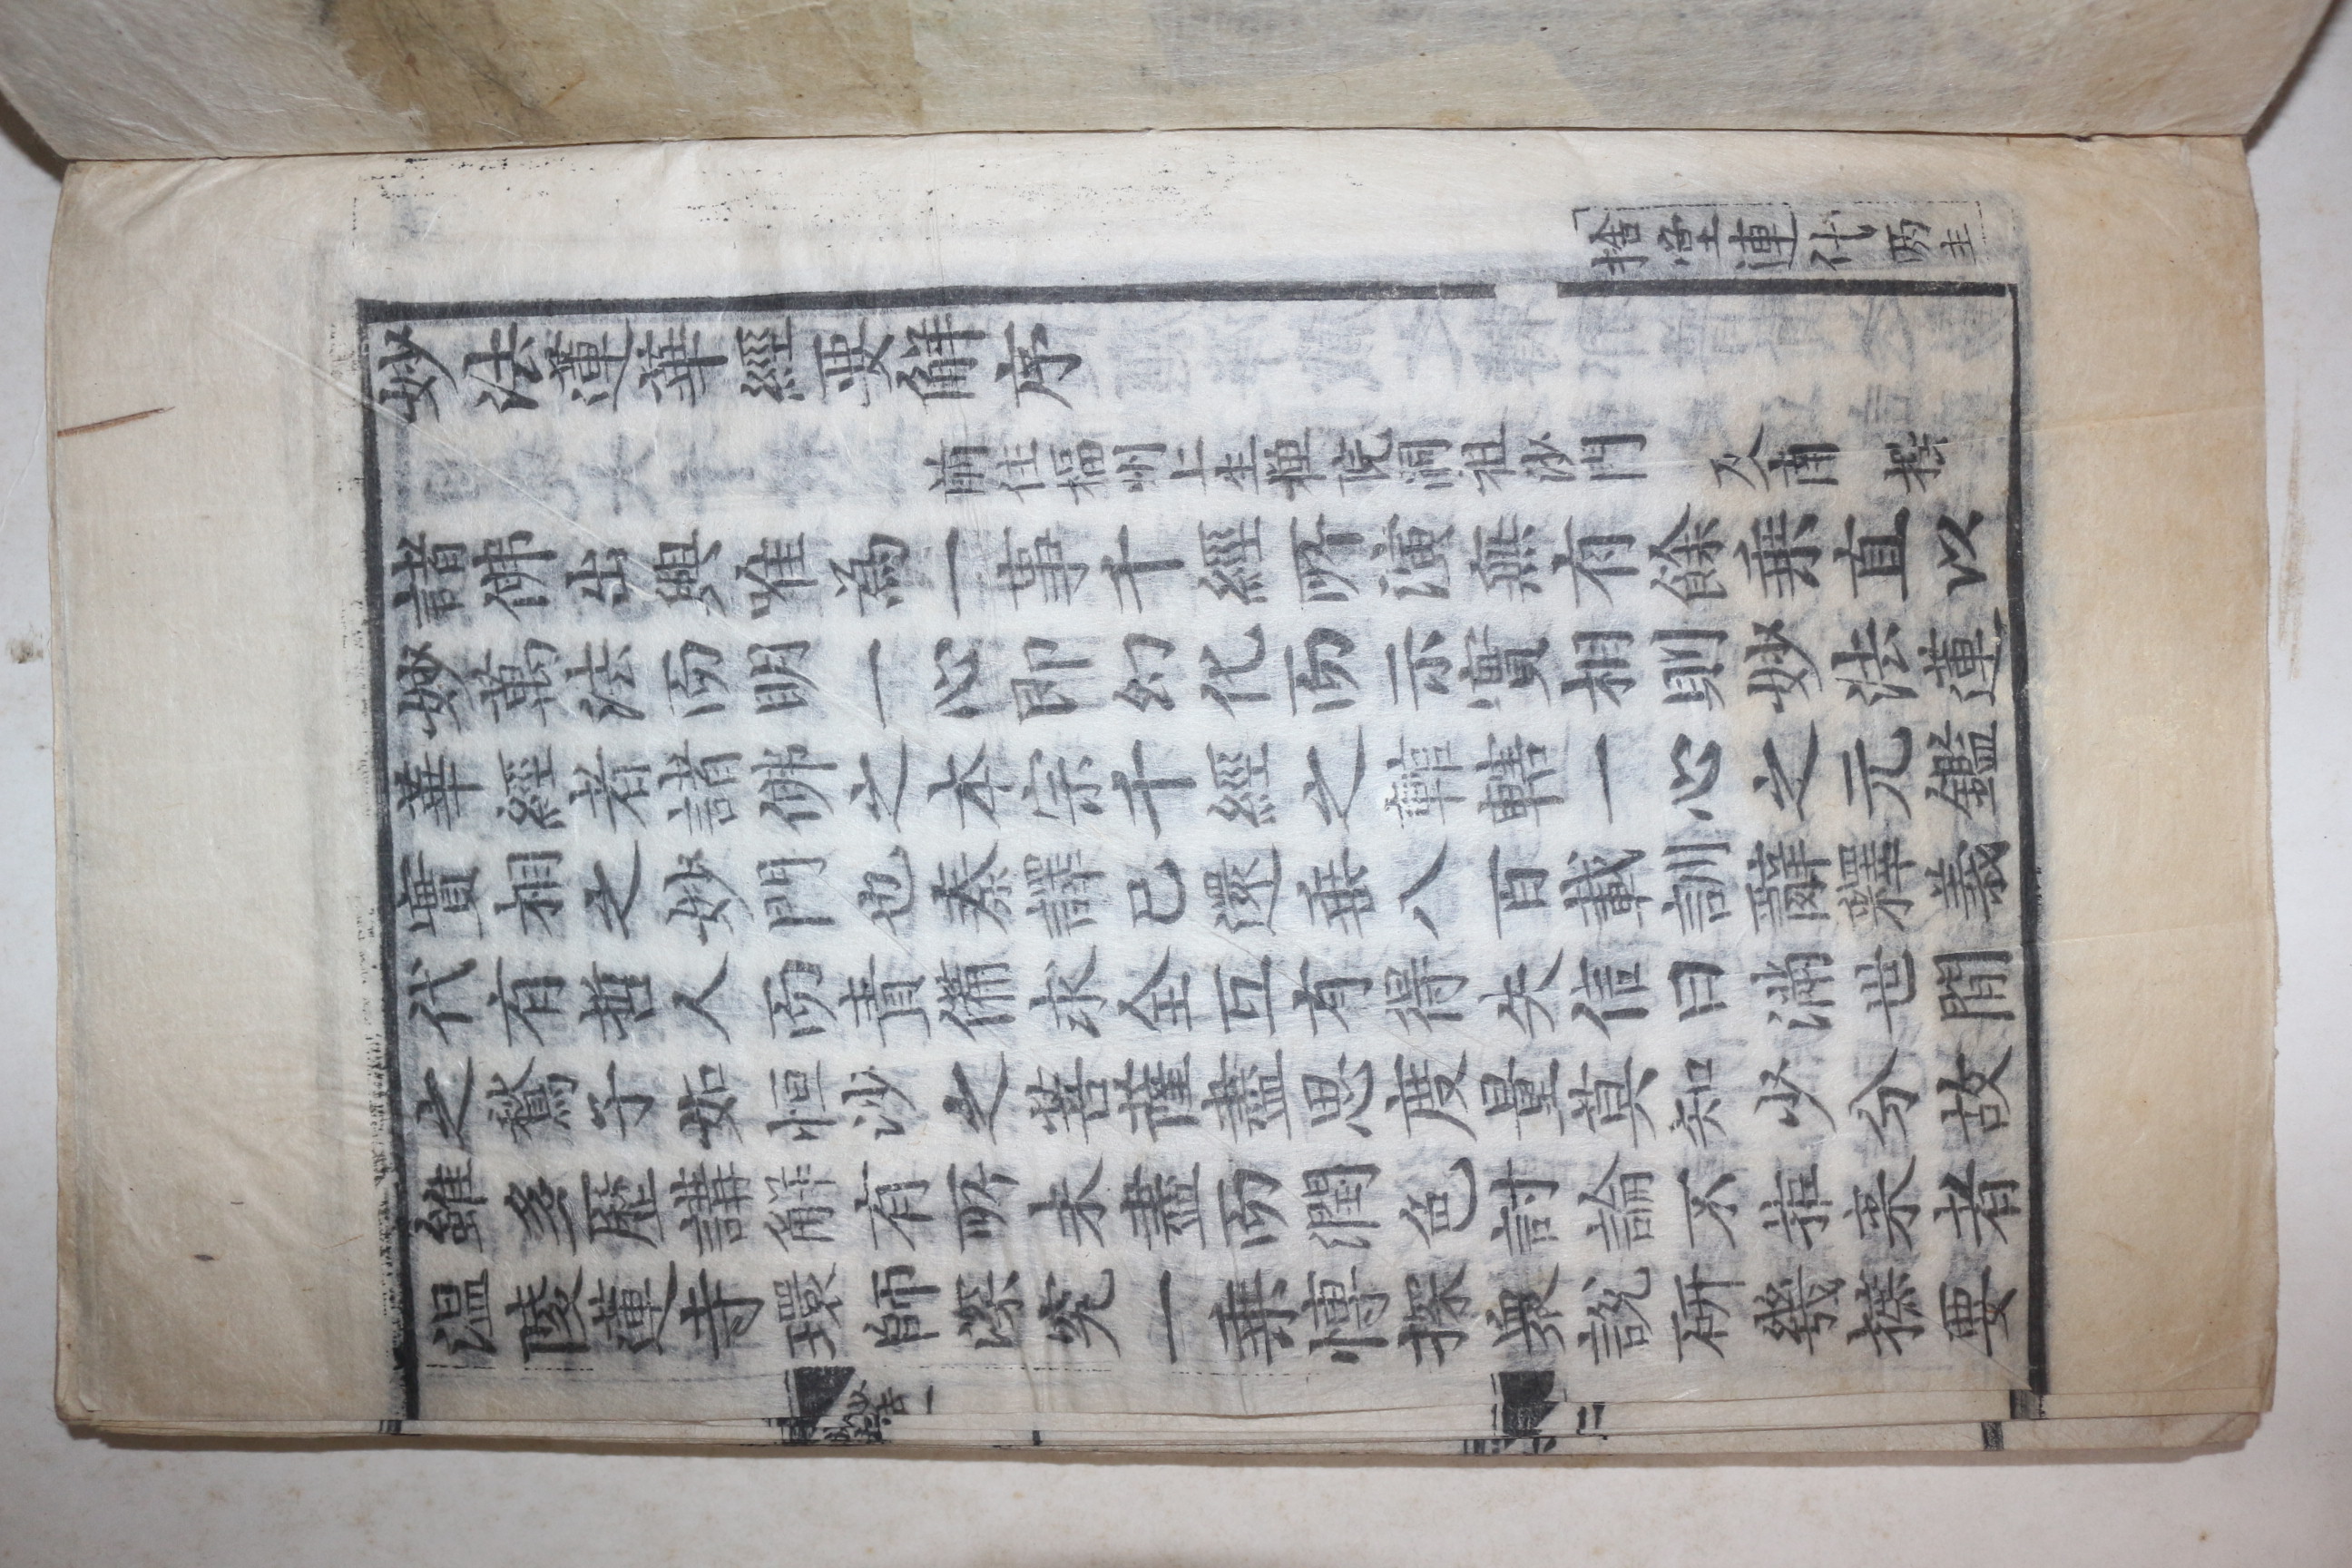 捨堂連代兩主
妙法蓮華經要解序
前住福州上生禪院嗣祖沙門 及南 撰
諸佛出興唯爲一事千經所演無有餘乗直以
妙萬法而明一心即幻化而示實相則妙法蓮
華經者諸佛之本宗千經之輨轄一心之元鑑
實相之妙門也秦譯已還垂八百載訓辭釋義
代有哲人而責備求全互有得失信曰滿世間
之鶖子如恒沙之菩薩盡思度量莫知少分故
雖多歷講解有所未盡而潤色討論不來者
溫陵蓮寺環師深究一乗愽探衆說研幾摭要